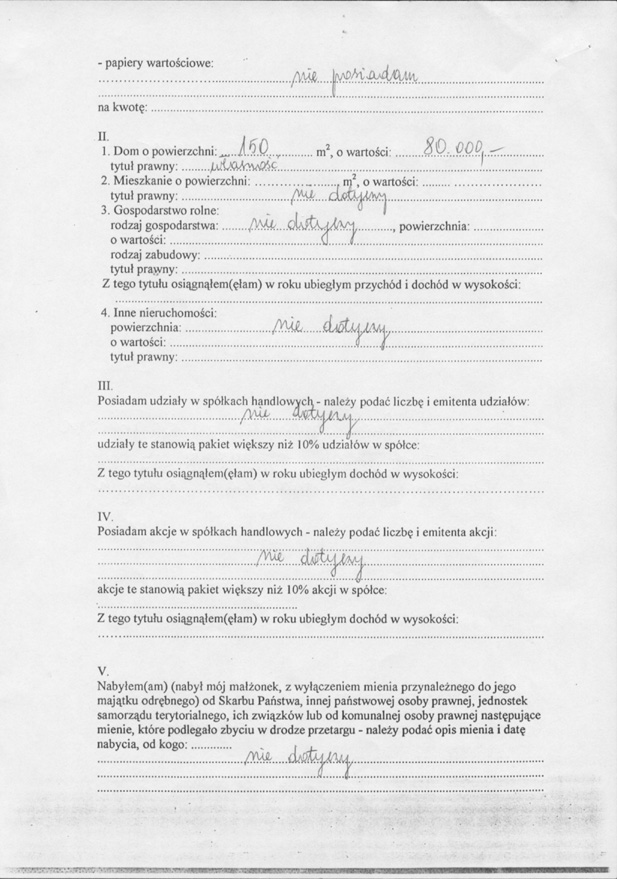 - papiery wartościowe:
nie posiadam
na kwotę:
II.
1. Dom o powierzchni: 150 m², o wartości: 80.000,-
tytuł prawny: własność
2. Mieszkanie o powierzchni: m², o wartości:
tytuł prawny: nie dotyczy
3. Gospodarstwo rolne:
rodzaj gospodarstwa: nie dotyczy, powierzchnia:
o wartości:
rodzaj zabudowy:
tytuł prawny:
Z tego tytułu osiągnąłem(ęłam) w roku ubiegłym przychód i dochód w wysokości:
4. Inne nieruchomości:
powierzchnia: nie dotyczy
o wartości:
tytuł prawny:
III.
Posiadam udziały w spółkach handlowych - należy podać liczbę i emitenta udziałów:
nie dotyczy
udziały te stanowią pakiet większy niż 10% udziałów w spółce:
Z tego tytułu osiągnąłem(ęłam) w roku ubiegłym dochód w wysokości:
IV.
Posiadam akcje w spółkach handlowych - należy podać liczbę i emitenta akcji:
nie dotyczy
akcje te stanowią pakiet większy niż 10% akcji w spółce:
Z tego tytułu osiągnąłem(ęłam) w roku ubiegłym dochód w wysokości:
V.
Nabyłem(am) (nabył mój małżonek, z wyłączeniem mienia przynależnego do jego
majątku odrębnego) od Skarbu Państwa, innej państwowej osoby prawnej, jednostek
samorządu terytorialnego, ich związków lub od komunalnej osoby prawnej następujące
mienie, które podlegało zbyciu w drodze przetargu - należy podać opis mienia i datę
nabycia, od kogo:
nie dotyczy